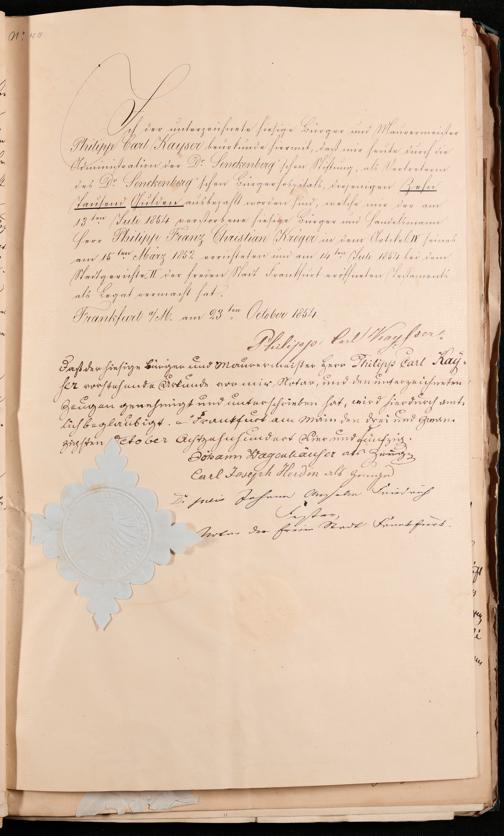 Ich der unterzeichnete hiesige Bürger und Maurermeister
Philipp Carl Kayser beurkunde hiermit, daß mir heute durch die
Administration der Dr. Senckenberg'schen Stiftung, als Vertreterin
des Dr. Senckenberg'schen Bürgerhospitals, diejenigen Zehn
Tausend Gulden ausbezahlt worden sind, welche mir der am
13ten Juli 1854 verstorbene hiesige Bürger und Handelsmann
Herr Philipp Franz Christian Krüger in dem Artikel IV seines
am 15ten März 1852 errichteten und am 14ten Juli 1854 bei dem
Stadtgerichte II der freien Stadt Frankfurt eröffneten Testaments
als Legat vermacht hat.
Frankfurt a/M. am 23ten October 1854.
Philipp Carl Kayser.
Daß der hiesige Bürger und Maurermeister Herr Philipp Carl Kay-
ser vorstehende Urkunde vor mir, Notar, und den unterzeichneten
Zeugen genehmigt und unterschrieben hat, wird hierdurch amt-
lich beglaubigt. Frankfurt am Main den drei und zwan-
zigsten October Achtzehnhundert Vier und fünfzig.
Johann als Zeuge
Carl Joseph als Zeuge
Dr. juris Johann Friedrich
Notar der freien Stadt Frankfurt.